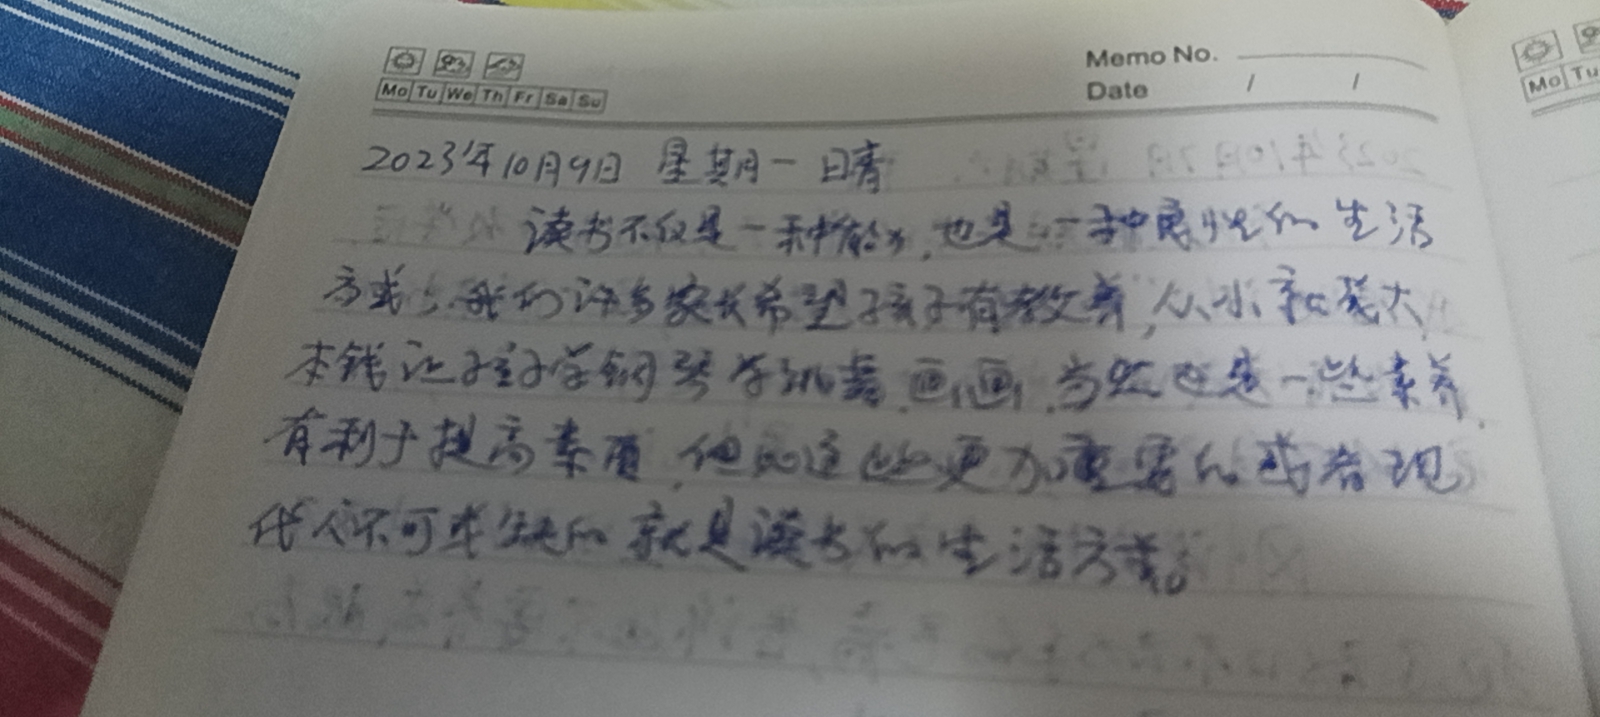 Memo No.
Date / /
Mo Tu We Th Fr Sa Su
Mo Tu
2023年10月9日 星期一 日晴
读书不仅是一种能力,也是一种良性的生活
方式。我们许多家长希望孩子有教养,从小就花大
本钱让孩子学钢琴学跳舞画画,当然也是一些素养,
有利于提高素质,但比这些更加重要的或者现
代人不可或缺的就是读书的生活方式。